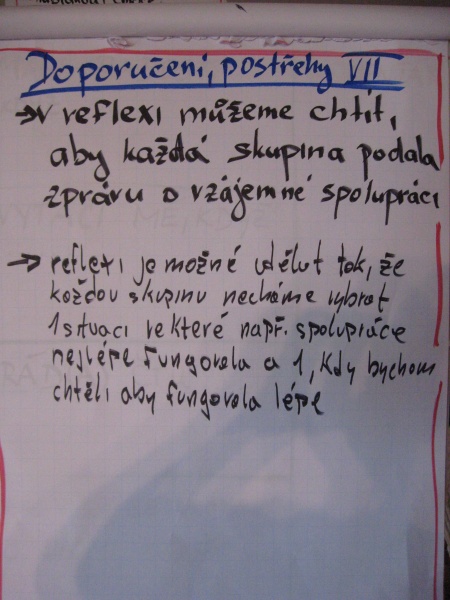 Doporučení, postřehy VII
→ v reflexi můžeme chtít,
aby každá skupina podala
zprávu o vzájemné spolupráci
→ reflexi je možné udělat tak, že
každou skupinu necháme vybrat
1 situaci ve které např. spolupráce
nejlépe fungovala a 1, kdy bychom
chtěli aby fungovala lépe